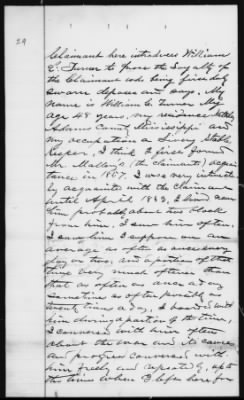 29
Claimant here introduces William
C. Turner to prove the Loyalty of
the Claimant who being first duly
sworn deposes and says, My
name is William C. Turner My
age 48 years, my residence
Adams County Mississippi and
my occupation a Livery Stable
Keeper, I think I first formed
Mr. (the claimants) acquain
tance in I was very intimately
acquainted with the Claimant
until April 1863, I lived near
him probably about two block
from him, I saw him often.
I saw him I suppose on an
average as often as once every
day or two, and a portion of that
time very much oftener than
that as often as once a day
sometime as often possibly as
twenty times a day, I boarded with
him during a portion of the time,
I conversed with him often
about the war and its causes
and progress conversed with
him freely and repeatedly, up to
the time when I left here for